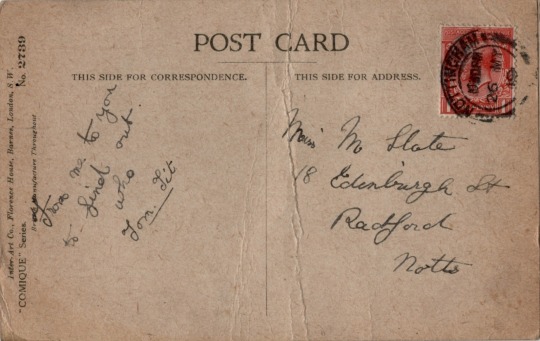 POST CARD
THIS SIDE FOR CORRESPONDENCE.
THIS SIDE FOR ADDRESS.
"COMIQUE" Series.
Inter-Art Co., Florence House, Barnes, London, S.W.
British Manufacture Throughout
No. 2789
From me to you
to find
who out.
Tom Tit
Miss M Slate
18 Edinburgh St
Radford
Notts
NOTTINGHAM
26